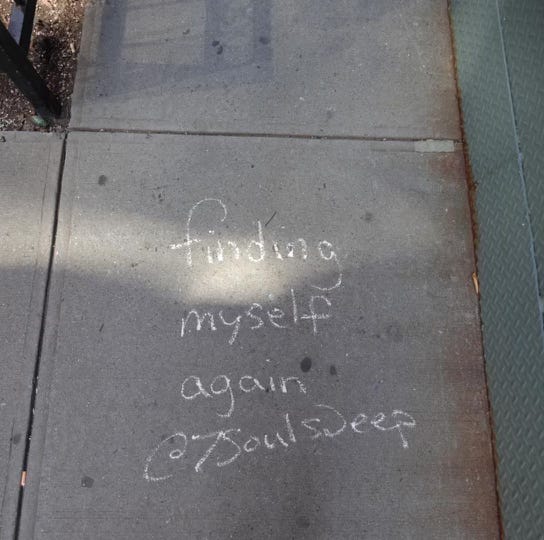 finding
myself
again
@7SoulsDeep